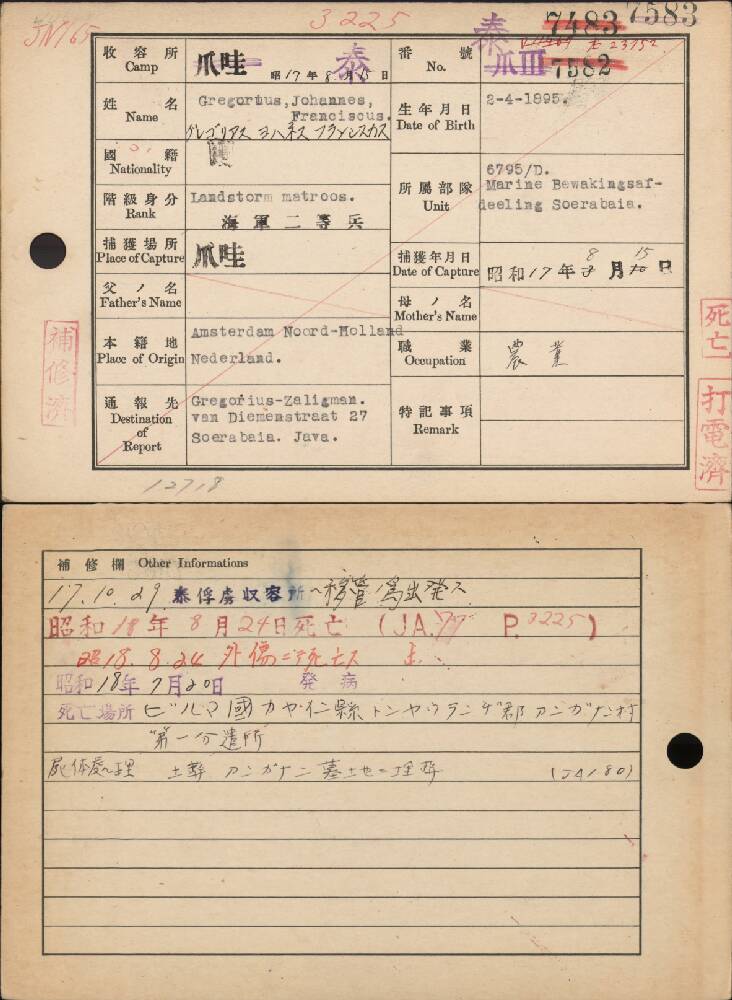 JN165
3225
7483 7583
泰
23752
収容所 Camp
爪哇 泰
昭17年8月15日
番號 No.
爪III 7582
姓名 Name
Gregorius,Johannes,
Franciscus.
グレゴリアス ヨハネス フランシスカス
生年月日 Date of Birth
2-4-1895.
國籍 Nationality
階級身分 Rank
Landstorm matroos.
海軍二等兵
所属部隊 Unit
6795/D.
Marine Bewakingsaf-
deeling Soerabaia.
捕獲場所 Place of Capture
爪哇
捕獲年月日 Date of Capture
昭和17年8月15日
父ノ名 Father's Name
母ノ名 Mother's Name
本籍地 Place of Origin
Amsterdam Noord-Holland
Nederland.
職業 Occupation
農業
通報先 Destination of Report
Gregorius-Zaligman.
van Diemenstraat 27
Soerabaia. Java.
特記事項 Remark
補修済
死亡
打電濟
12718
補修欄 Other Informations
17.10.29 泰俘虜収容所ヘ移管ノ為出発ス
昭和18年8月24日死亡 (JA.77 P.3225)
昭18.8.24 外傷ニテ死亡ス
昭和18年7月20日 発病
死亡場所 ビルマ國カヤイン縣トンヤウランゲ郡カンガナン村
第一分遣所
屍体処理 土葬 カンガナン墓地ニ埋葬 (JA180)